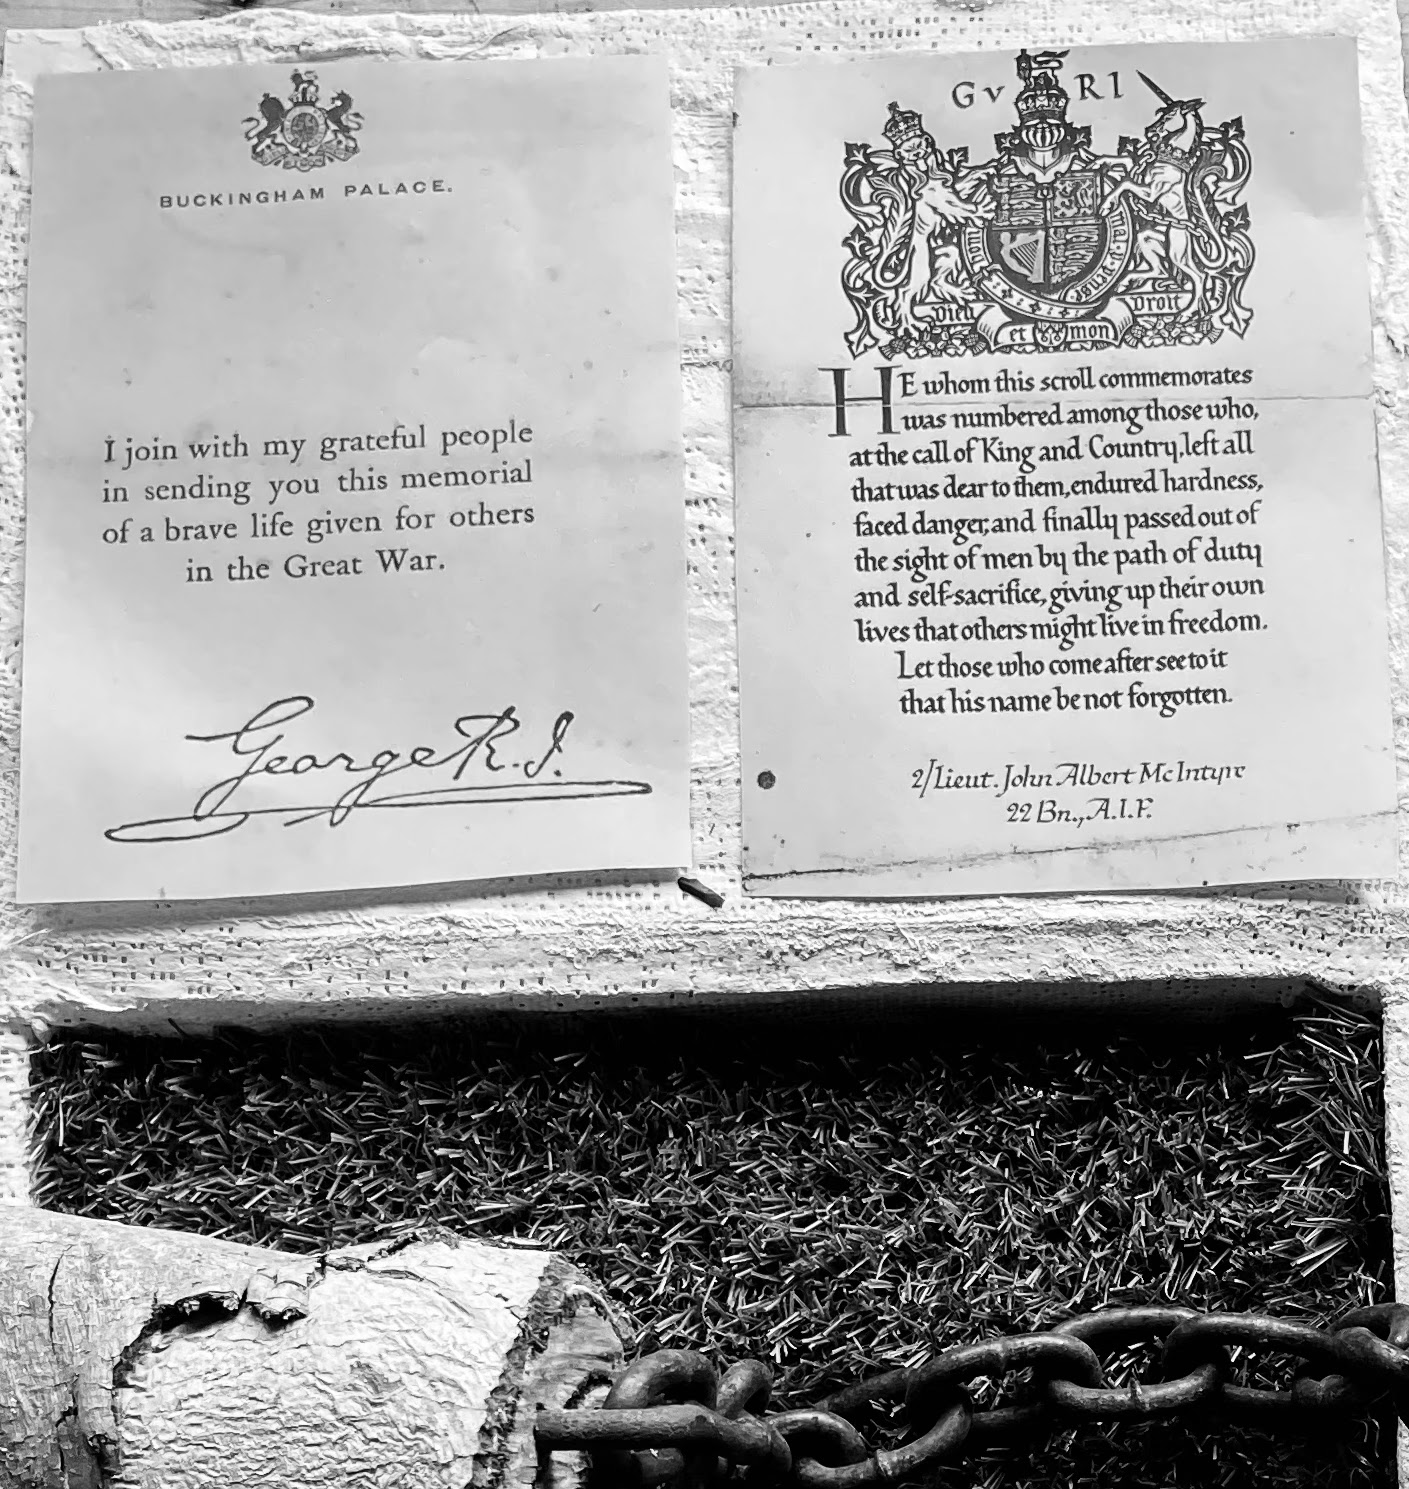 BUCKINGHAM PALACE.
I join with my grateful people
in sending you this memorial
of a brave life given for others
in the Great War.
George R.I.
G v R I
Dieu et mon Droit
HE whom this scroll commemorates
was numbered among those who,
at the call of King and Country, left all
that was dear to them, endured hardness,
faced danger, and finally passed out of
the sight of men by the path of duty
and self-sacrifice, giving up their own
lives that others might live in freedom.
Let those who come after see to it
that his name be not forgotten.
2/Lieut. John Albert McIntyre
22 Bn., A.I.F.